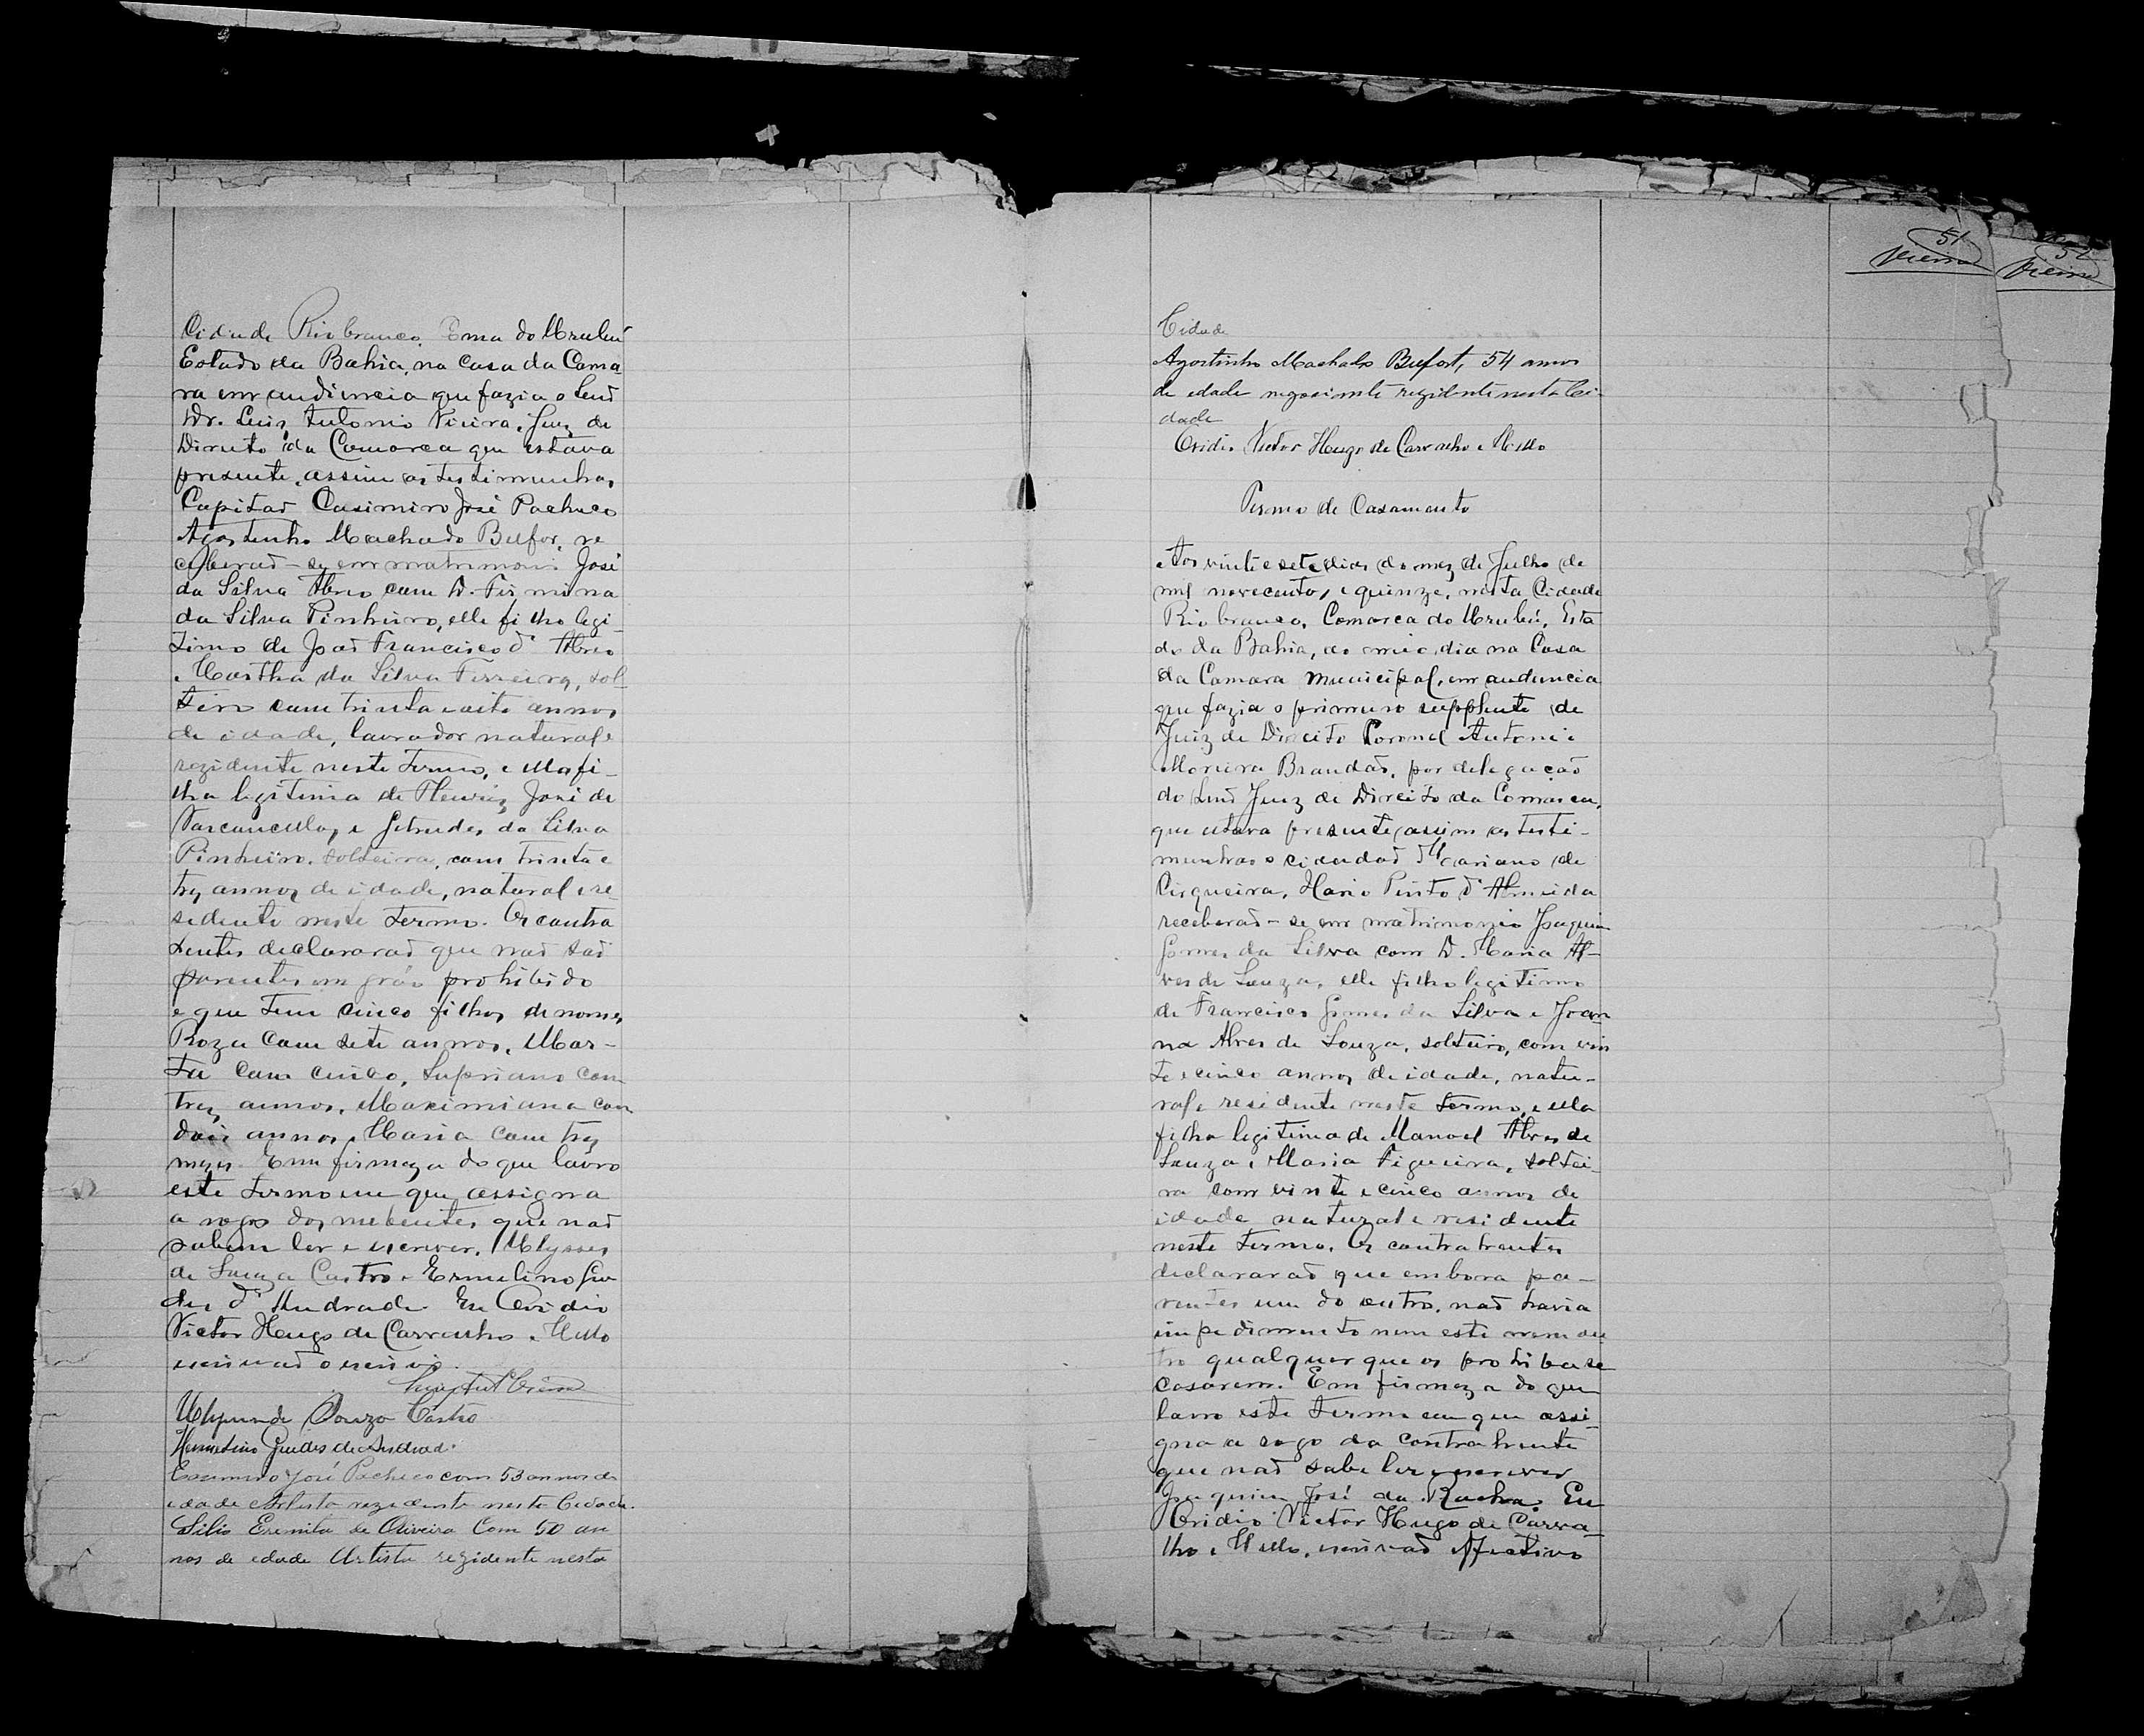 Cidade Rio branco, Coma do Urubú
Estado da Bahia, na Casa da Cama-
ra em audiencia que fazia o Senr
Dr. Luis Antonio Vieira, Juiz de
Direito da Comarca que estava
presente, assim as testimunhas
Capitaõ Casimiro José Pacheco
Agostinho Machado Belfor, re
ceberaõ-se em matrimonio José
da Silva Abreo com D. Firmina
da Silva Pinheiro, elle filho legi-
timo de Joaõ Francisco d' Abreo
e Martha da Silva Ferreira, sol-
teiro com trinta e oito annos
de idade, lavrador natural e
rezidente neste termo, e ella fi-
lha legitima de Henriz José de
Vasconcellos e Getrudes da Silva
Pinheiro, solteira, com trinta e
trez annos de idade, natural e re-
sedente neste termo. Os contra
hentes declararaõ que naõ saõ
parentes em gráo prohibido
e que tem cinco filhos de nomes
Roza com sete annos, Mar-
ta com cinco, Supriano com
trez annos, Maximiana com
dois annos e Maria com trez
mezes. Em firmeza do que lavro
este termo em que assigna
a rogos dos nubentes que naõ
sabem ler e escrever, Ulysses
de Souza Castro e Ermelino Gue
des d' Andrade. Eu Ovidio
Victor Hugo de Carvalho e Mello
escrivaõ o escrevi.
Luis Ant Vieira
Ulysses de Souza Castro
Hermelino Guedes de Andrade
Casimiro José Pacheco com 53 annos de
idade Artista rezidente nesta Cidade.
Silio Eremita de Oliveira com 50 an
nos de edade Artista rezidente nesta
51
Vieira
52
Vieira
Cidade
Agostinho Machado Belfort, 54 annos
de edade negociante rezidente nesta Ci-
dade
Ovidio Victor Hugo de Carvalho e Mello
Termo de Casamento
Aos vinte e sete dias do mez de Julho de
mil novecentos e quinze, nesta Cidade
Rio branco, Comarca do Urubú, Esta
do da Bahia, ao meio dia na Casa
da Camara Municipal, em audiencia
que fazia o primeiro supplente de
Juiz de Direito Coronel Antonio
Moreira Brandaõ, por delegaçaõ
do Senr Juiz de Direito da Comarca,
que estava presente, assim as testi-
munhas o cidadaõ Mariano de
Cirqueira, Mario Pinto d' Almeida
receberaõ-se em matrimonio Joaquim
Gomes da Silva com D. Maria Al-
ves de Souza, elle filho legitimo
de Francisco Gomes da Silva e Joan
na Alves de Souza, solteiro, com vin
te e cinco annos de idade, natu-
ral e residente neste termo, e ella
filha legitima de Manoel Alves de
Souza e Maria Figueira, soltei-
ra com vinte e cinco annos de
idade natural e residente
neste termo. Os contrahentes
declararaõ que embora pa-
rentes um do outro, naõ havia
impedimento nem este nem ou
tro qualquer que os prohiba se
casarem. Em firmeza do que
lavro este termo em que assi-
gna a rogo da contrahente
que naõ sabe ler e escrever
Joaquim José da Rocha. Eu
Ovidio Victor Hugo de Carva-
lho e Mello, escrivaõ effectivo